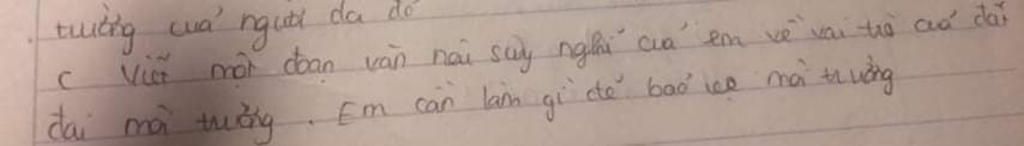 trường của người da đỏ
c Viết một đoạn văn nói suy nghĩ của em về vai trò của đất
đai môi trường. Em cần làm gì để bảo vệ môi trường